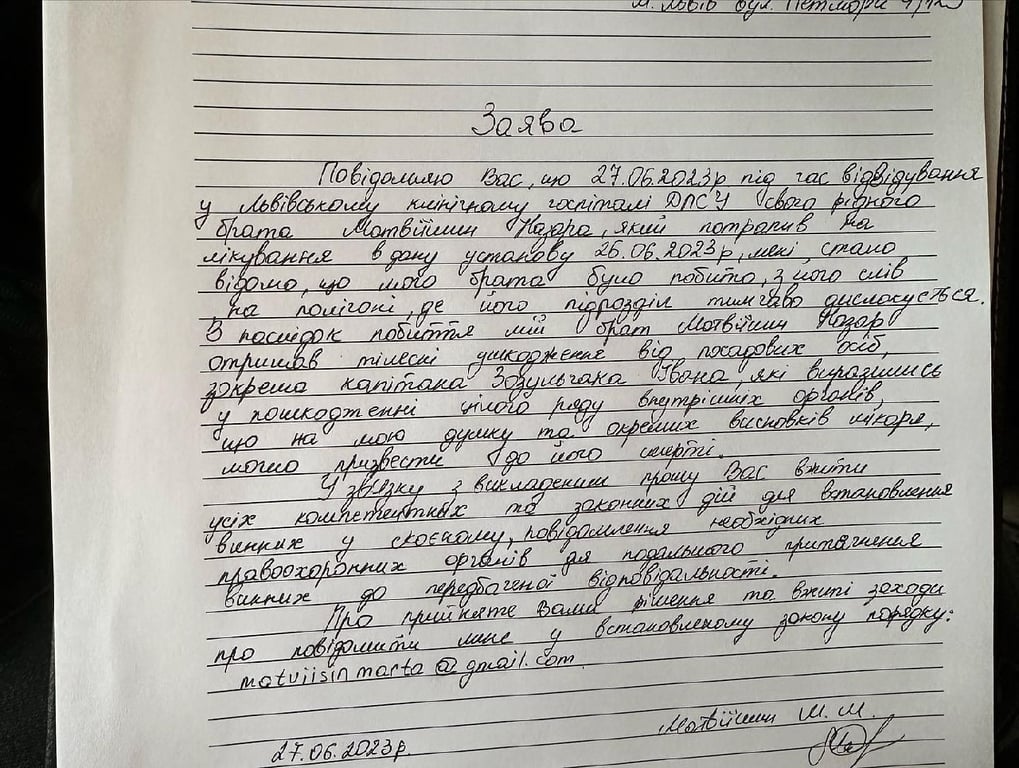 м. Львів вул. Петлюри
Заява
Повідомляю Вас, що 27.06.2023р під час відвідування
у львівському клінічному госпіталі ДПСУ свого рідного
брата Матвіїшин Назара, який потрапив на
лікування в дану установу 26.06.2023р, мені стало
відомо, що мого брата було побито, з його слів
на полігоні, де його підрозділ тимчаво дислокується.
В послідок побиття мій брат Матвіїшин Назар
отримав тілесні ушкодження від посадових осіб,
зокрема капітана Зозульчака Івана, які виразились
у пошкодженні цілого ряду внутрішніх органів,
що на мою думку та окремих висновків лікаря,
могло призвести до його смерті.
У зв'язку з викладеним прошу Вас вжити
усіх компетентних та законних дій для встановлення
винних у скоєному, повідомлення необхідних
правоохоронних органів для подальшого притягнення
винних до передбаченої відповідальності.
Про прийняте Вами рішення та вжиті заходи
про повідомити мене у встановленому закону порядку:
matviisinmarta@gmail.com
Матвіїшин М. М.
27.06.2023р